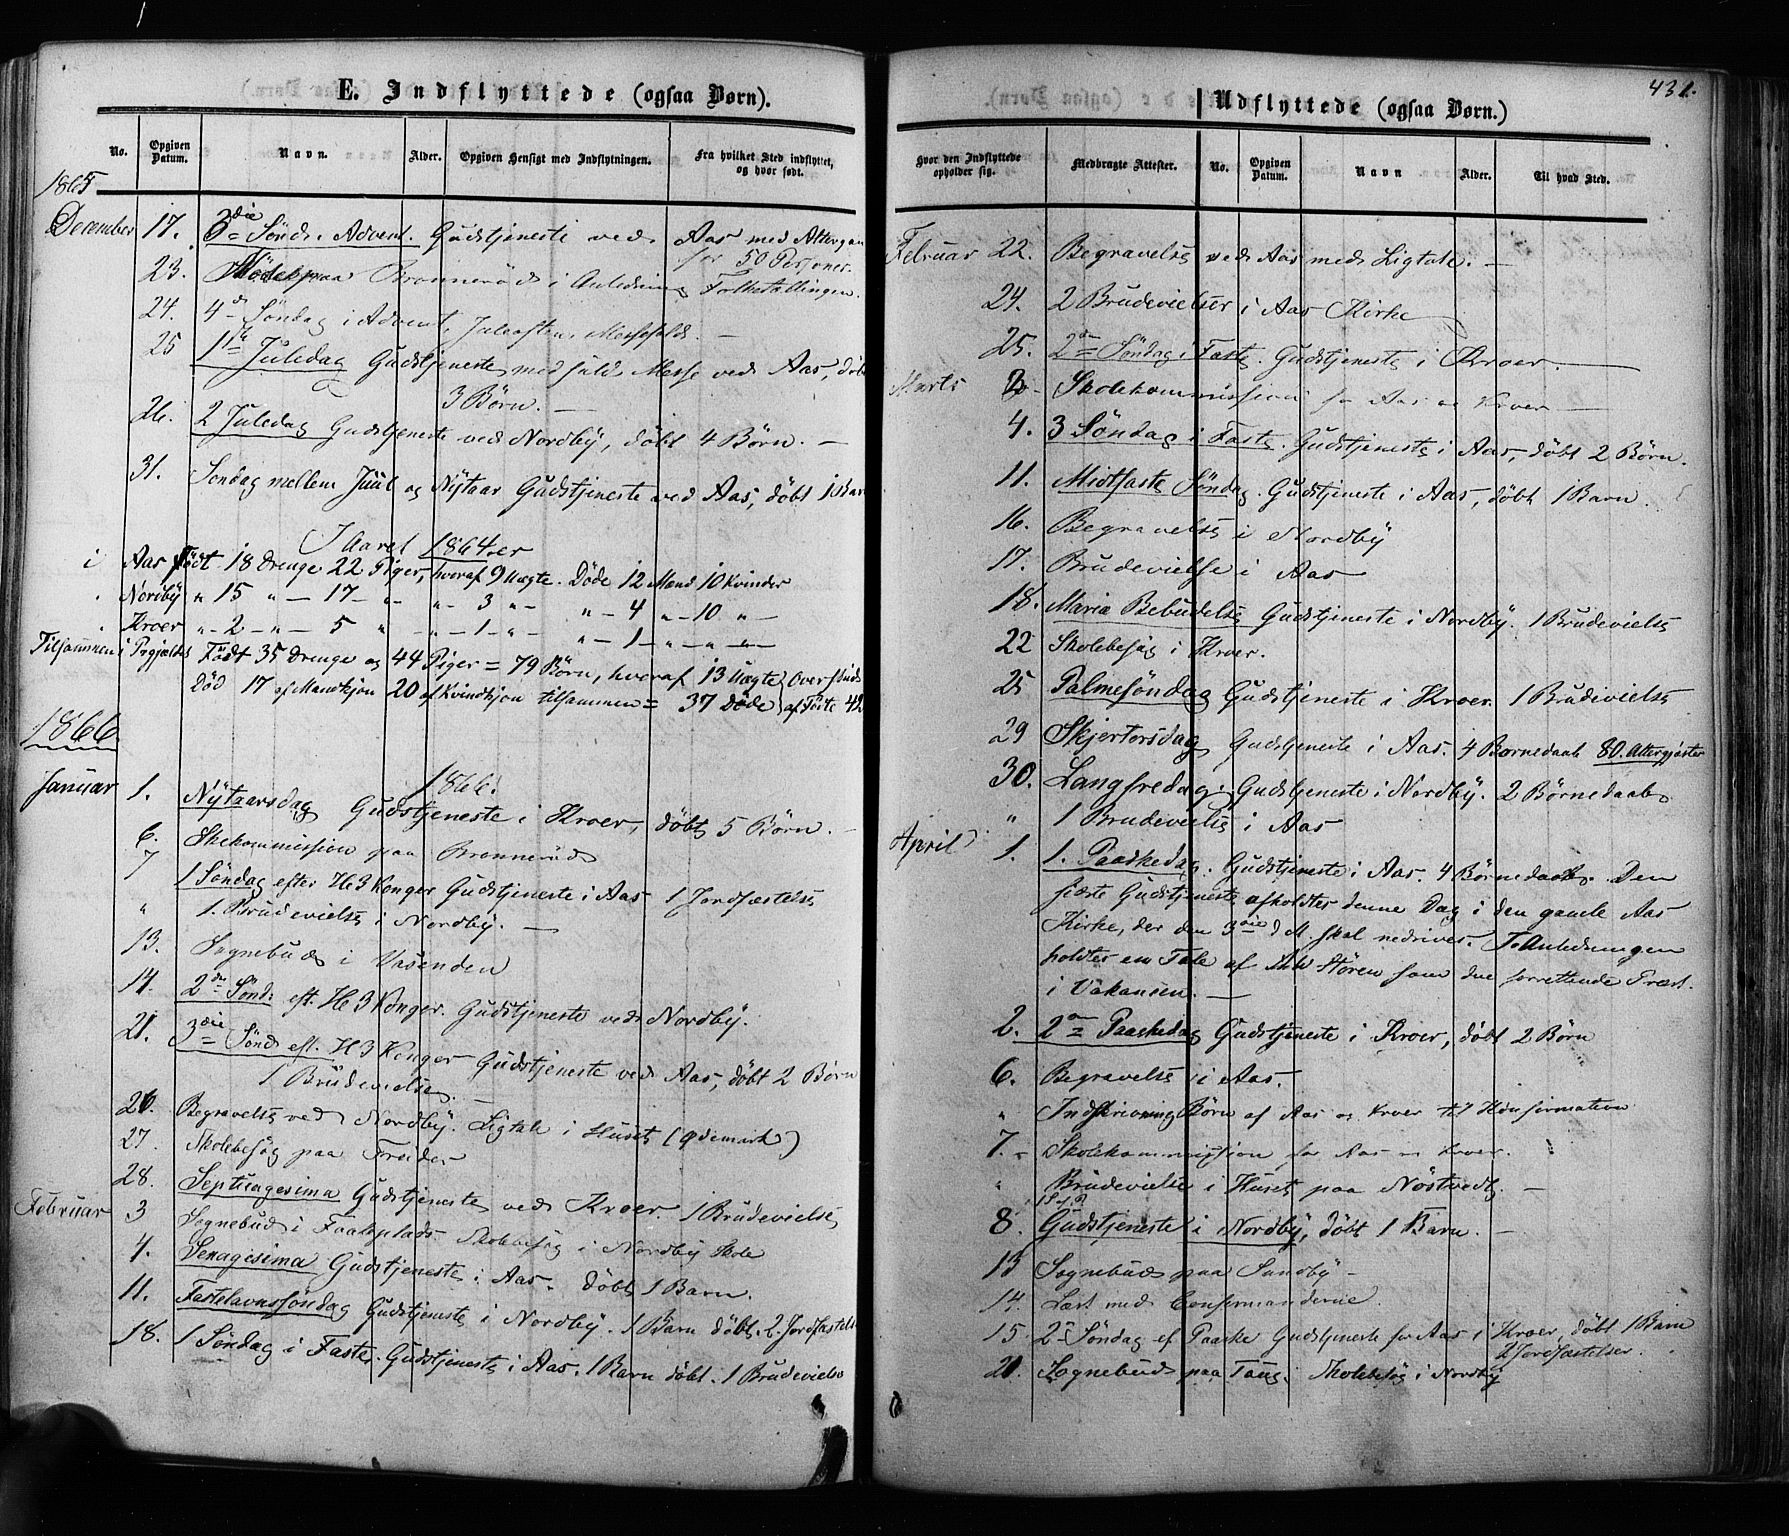 E. Indflyttede (ogsaa Børn).
No.
Opgiven Datum.
Navn.
Alder.
Opgiven Hensigt med Indflytningen.
Fra hvilket Sted indflyttet, og hvor født.
1865
December 17. 3die Sønd. Advent. Gudstjeneste ved Aas med Altergan
for 50 Personer.
23. Møde paa Brønnerød i Anledning Folketællingen.
24. 4de Søndag i Advent, Juleaften, Messefald. —
25 1ste Juledag Gudstjeneste med fuld Messe ved Aas, døbt
3 Børn. —
26. 2 Juledag Gudstjeneste ved Nordby, døbt 4 Børn. —
31. Søndag mellem Juul og Nÿtaar Gudstjeneste ved Aas, døbt 1 Barn
I Aaret 1864 er
i Aas Født 18 Drenge 22 Piger, hvoraf 9 Uægte. Døde 12 Mænd 10 Kvinder
" Nordby " 15 " — 17 — " " — 3 " — " — 4 " — 10 "
" Kroer " — 2 — " — 5 " — " — 1 — " — " — 1 — " — " —
Tilsammen i Prgjældet Født 35 Drenge og 44 Piger = 79 Børn, hvoraf 13 Uægte Overskud
Død 17 af Mandkjøn 20 af Kvindkjøn tilsammen = 37 Døde af Fødte 42
1866.
1866.
Januar 1. Nÿtaarsdag Gudstjeneste i Kroer, døbt 5 Børn. —
6. Skekommission paa Brønnerød
7 1 Søndag efter H 3 Konger Gudstjeneste i Aas 1 Jordfæstelse
" 1. Brudevielse i Nordby. —
13. Sognebud i Vasenden
14. 2den Sønd: eft. H 3 Konger. Gudstjeneste ved Nordby.
21. 3die Sønd eft. H 3 Konger Gudstjeneste ved Aas, døbt 2 Børn
1 Brudevielse. —
26. Begravelse ved Nordby. Ligtale i Huset (Ødemark)
27. Skolebesøg paa Froider
28. Septuagesima Gudstjeneste ved Kroer. 1 Brudevielse
Februar 3 Sognebud i Faaleplads. Skolebesøg i Nordby Skole
4. Sexagesima Gudstjeneste i Aas. døbt 1 Barn.
11. Fastelavnssøndag Gudstjeneste i Nordby. 1 Barn døbt. 2 Jordfæstelse
18. 1 Søndag i Faste. Gudstjeneste i Aas. 1 Barn døbt. 1 Brudevielse
431.
Udflyttede (ogsaa Børn.)
Hvor den Indflyttede opholder sig.
Medbragte Attester.
No.
Opgiven Datum.
Navn
Alder.
Til hvad Sted.
Februar 22. Begravelse ved Aas med Ligtale. —
24. 2 Brudevielser i Aas Kirke
25. 2den Søndag i Faste. Gudstjeneste i Kroer. —
Marts 2 Skolekommission for Aas og Kroer —
4. 3 Søndag i Faste. Gudstjeneste i Aas, døbt 2 Børn.
11. Midtfaste Søndag. Gudstjeneste i Aas, døbt 1 Barn.
16. Begravelse i Nordby
17. Brudevielse i Aas
18. Maria Bebudelse Gudstjeneste i Nordby. 1 Brudevielse
22 Skolebesøg i Kroer.
25 Palmesøndag Gudstjeneste i Kroer. 1 Brudevielse
29 Skjertorsdag Gudstjeneste i Aas. 4 Barnedaab 80. Altergjæster
30. Langfredag. Gudstjeneste i Nordby. 2 Børnedaab.
" 1 Brudevielse i Aas
April 1. 1. Paaskedag. Gudstjeneste i Aas. 4 Børnedaab. Den
sidste Gudstjeneste afholdtes denne Dag i den gamle Aas
Kirke, der den 3die d. M. skal nedrives. I Anledningen
holdtes en Tale af Støren som den forrettende Præst
i Vakansen. —
2. 2den Paaskedag Gudstjeneste i Kroer, døbt 2 Børn
6. Begravelse i Aas.
" Indskrivning Børn af Aas og Kroer til Konfirmation
7. Skolekommission for Aas og Kroer.
" Brudevielse i Huset paa Nøstvedt. —
1 S. e. P.
8. Gudstjeneste i Nordby, døbt 1 Barn. —
13 Sognebud paa Sundby —
14. Læst med Confirmanderne.
15. 2den Søndag ef Paaske Gudstjeneste for Aas i Kroer, døbt 1 Barn
2 Jordfæstelser.
21. Sognebud paa Taug. Skolebesøg i Nordby